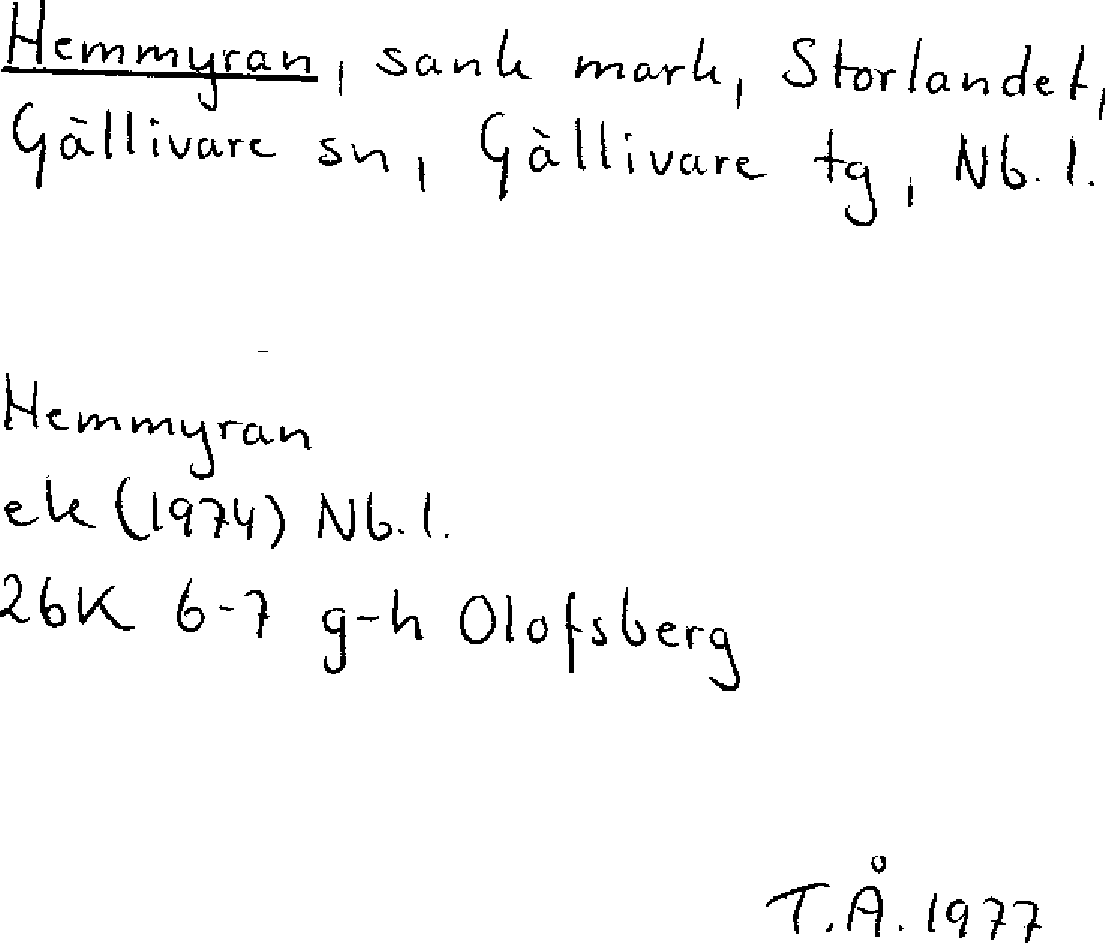 Hemmyran, sank mark, Storlandet,
Gällivare sn, Gällivare tg, Nb. l.
Hemmyran
ek (1974) Nb. l.
26K 6-7 g-h Olofsberg
T.Å. 1977